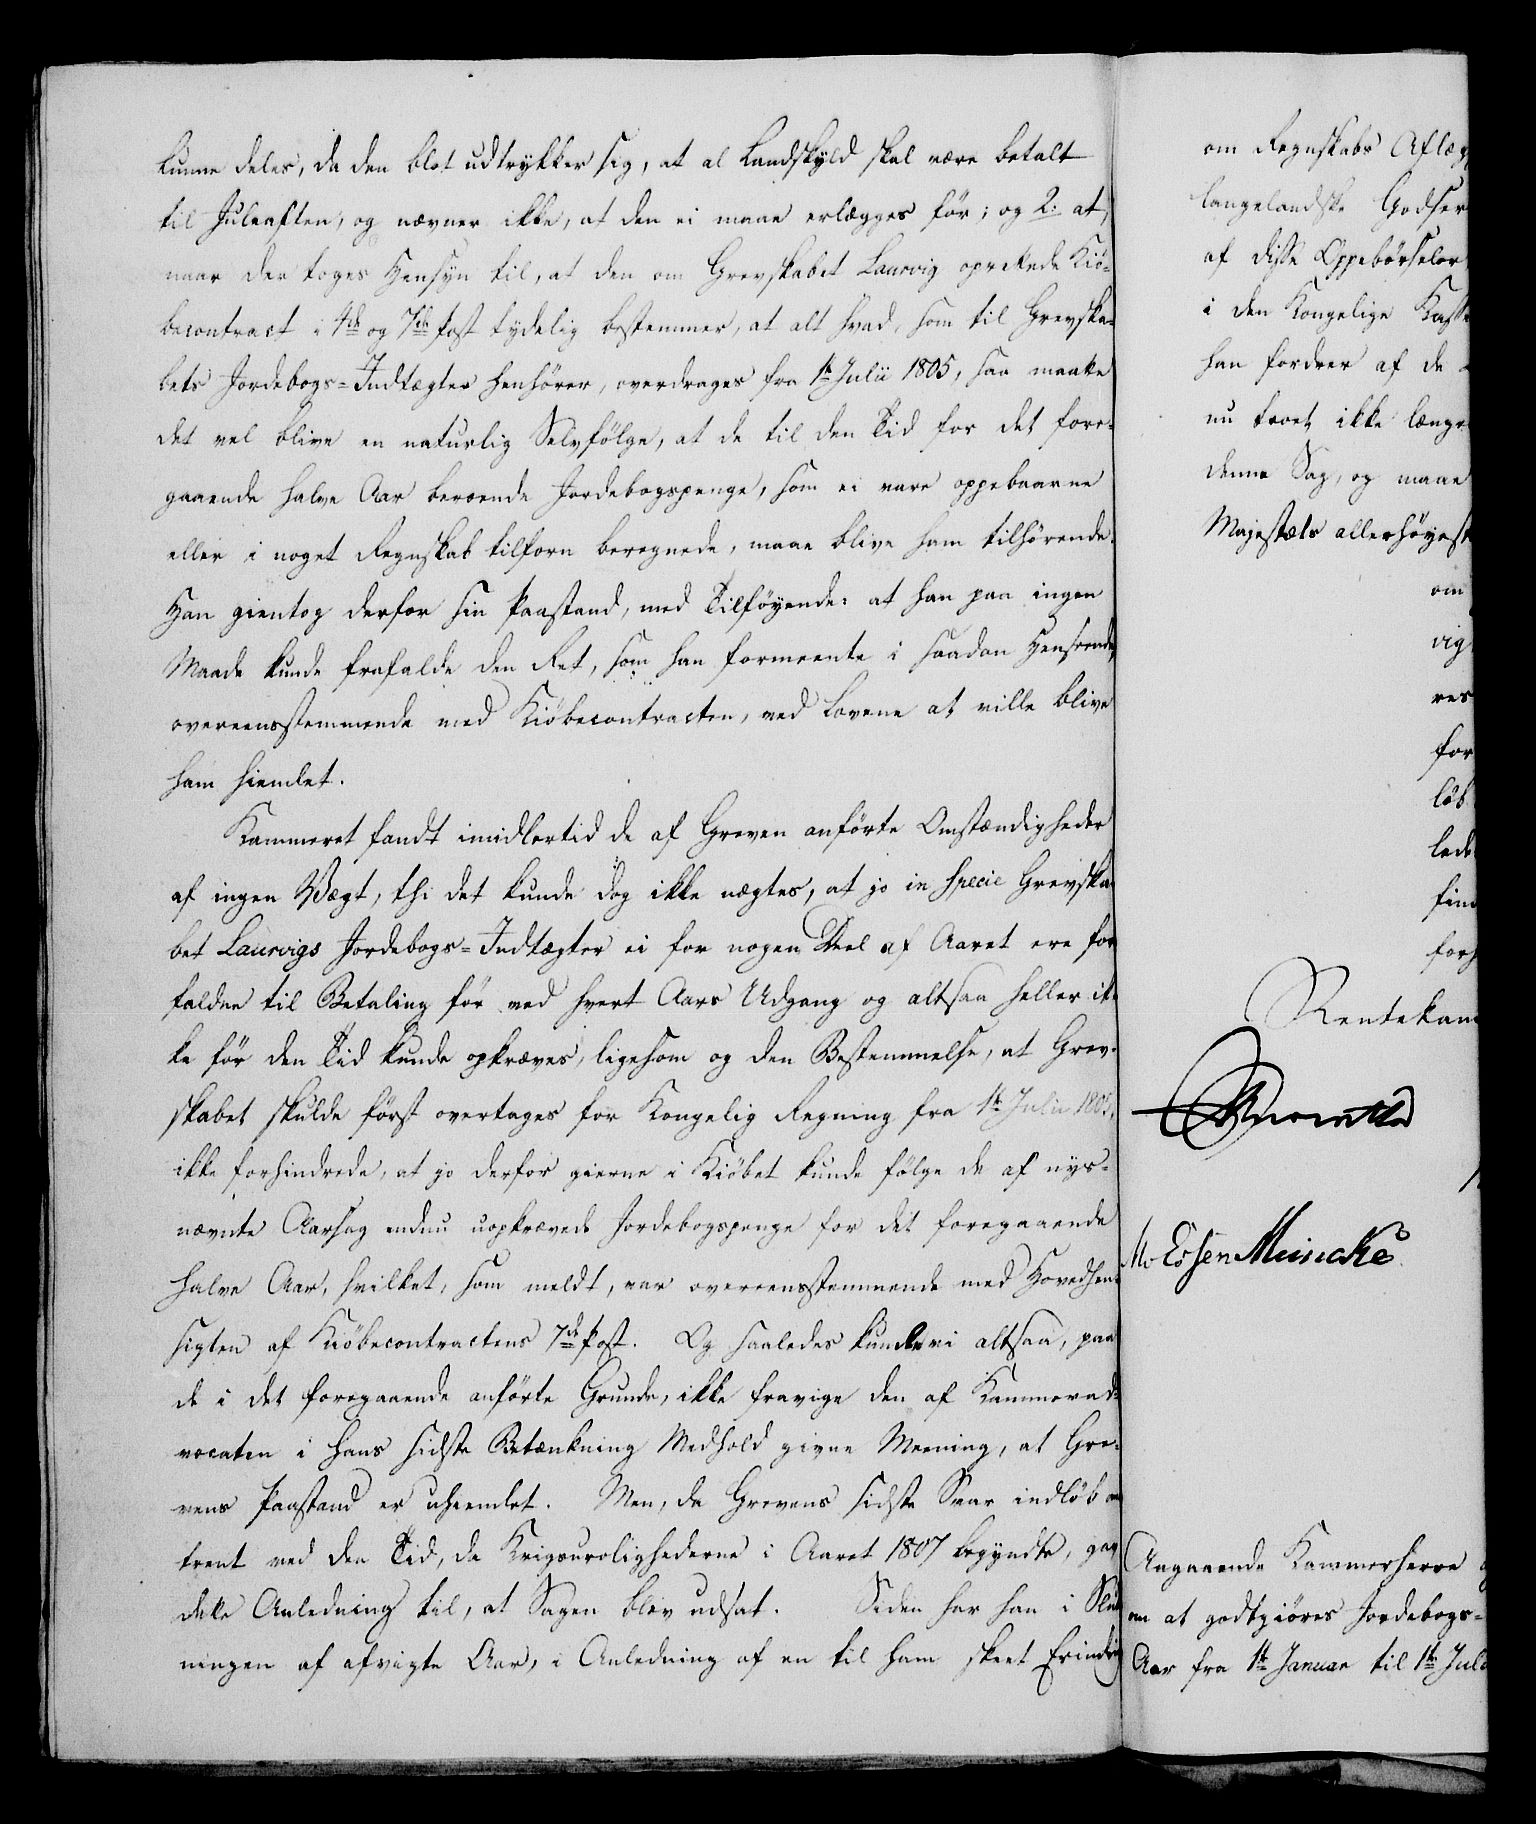 kunne deles, da den blot udtrykker sig, at al Landskyld skal være betalt
til Juleaften, og nævner ikke, at den ei maae erlægges før; og 2: at,
naar der toges Hensyn til, at den om Grevskabet Laurvig oprettede Kiö-
becontract i 4de og 7de Post tydelig bestemmer, at alt hvad, som til Grevska-
bets Jordebogs-Indtægter henhörer, overdrages fra 1te Julii 1805, saa maatte
det vel blive en naturlig Selvfölge, at de til den Tid for det fore-
gaaende halve Aar beroende Jordebogspenge, som ei vare oppebaarne
eller i noget Regnskab tilforn beregnede, maae blive ham tilhörende.
Han gientog derfor sin Paastand, med Tilföyende: at han paa ingen
Maade kunde frafalde den Ret, som han formeente i saadan Henseende,
overeensstemmende med Kiöbecontracten, ved Lovene at ville blive
ham hiemlet.
Kammeret fandt imidlertid de af Greven anförte Omstændigheder
af ingen Vægt, thi det kunde dog ikke nægtes, at jo in specie Grevska-
bet Laurvigs Jordebogs-Indtægter ei for nogen Deel af Aaret ere for
faldne til Betaling för ved hvert Aars Udgang og altsaa heller ik-
ke för den Tid kunde opkræves, ligesom og den Bestemmelse, at Grev-
skabet skulde först overtages for Kongelig Regning fra 1te Julii 1805,
ikke forhindrede, at jo derfor gierne i Kiöbet kunde fölge de af nys-
nævnte Aarsag endnu uopkrævede Jordebogspenge for det foregaaende
halve Aar, hvilket, som meldt, var overeensstemmende med Hovedhen-
sigten af Kiöbecontractens 7de Post. Og saaledes kunde vi altsaa, paa
de i det foregaaende anförte Grunde, ikke fravige den af Kammerad-
vocaten i hans sidste Betænkning Medhold givne Meening, at Gre-
vens Paastand er uhiemlet. Men, da Grevens sidste Svar indlöb om
trent ved den Tid, da Krigsurolighederne i Aaret 1807 begyndte, gav
dette Anledning til, at Sagen blev udsat. Siden har han i Slut
ningen af afvigte Aar, i Anledning af en til ham skeet Erindring
om Regnskabs Aflæg
langelandske Godser
af disse Oppebörseler
i den Kongelige Kasse
han fordrer af de
nu troet ikke længer
denne Sag, og maae
Majestæts allerhöyest
om
vig
res
for
löb
lede
find
forh
Rentekam
Essen Meincke
Angaaende Kammerherre
om at godtgiöres Jordebogs-
Aar fra 1te Januar til 1te Juli